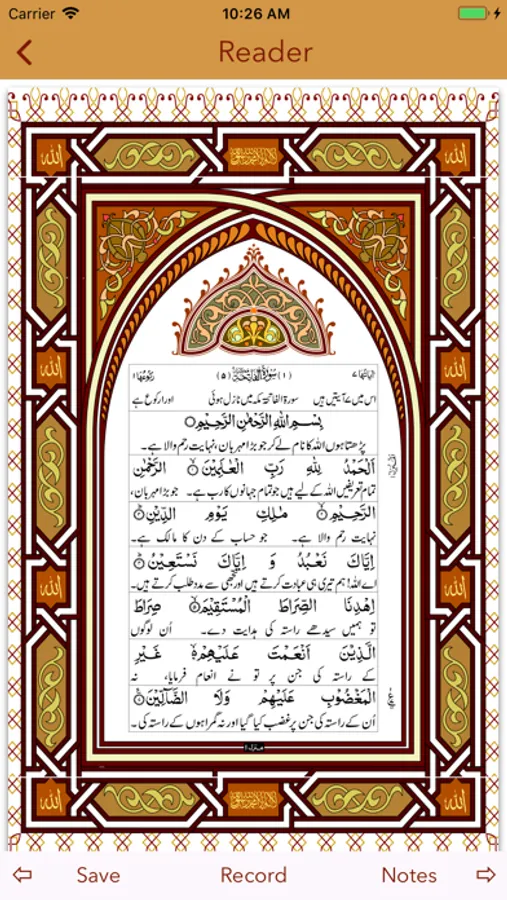 Carrier 10:26 AM
Reader
الله الله
اٰیاتہا ۷ (۱) سورۃ الفاتحۃ (۵) رکوعہا ۱
اس میں ۷ آیتیں ہیں سورۃ الفاتحہ مکہ میں نازل ہوئی اور ۱ رکوع ہے
بِسْمِ اللهِ الرَّحْمٰنِ الرَّحِيْمِ
پڑھتا ہوں اللہ کا نام لے کر جو بڑا مہربان، نہایت رحم والا ہے۔
اَلْحَمْدُ لِلّٰهِ رَبِّ الْعٰلَمِيْنَ ۱ الرَّحْمٰنِ
تمام تعریفیں اللہ کے لیے ہیں جو تمام جہانوں کا رب ہے۔ جو بڑا مہربان،
الرَّحِيْمِ ۲ مٰلِكِ يَوْمِ الدِّيْنِ ۳
نہایت رحم والا ہے۔ جو حساب کے دن کا مالک ہے۔
اِيَّاكَ نَعْبُدُ وَ اِيَّاكَ نَسْتَعِيْنُ ۴
اے اللہ! ہم تیری ہی عبادت کرتے ہیں اور تجھی سے مدد طلب کرتے ہیں۔
اِهْدِنَا الصِّرَاطَ الْمُسْتَقِيْمَ ۵ صِرَاطَ
تو ہمیں سیدھے راستہ کی ہدایت دے۔ اُن لوگوں
الَّذِيْنَ اَنْعَمْتَ عَلَيْهِمْ ۶ غَيْرِ
کے راستہ کی جن پر تو نے انعام فرمایا، نہ
الْمَغْضُوْبِ عَلَيْهِمْ وَلَا الضَّآلِّيْنَ ۷
اُن کے راستہ کی جن پر غضب کیا گیا اور نہ گمراہوں کے راستہ کی۔
منزل ۱
الله الله
الله الله
الله الله
Save Record Notes